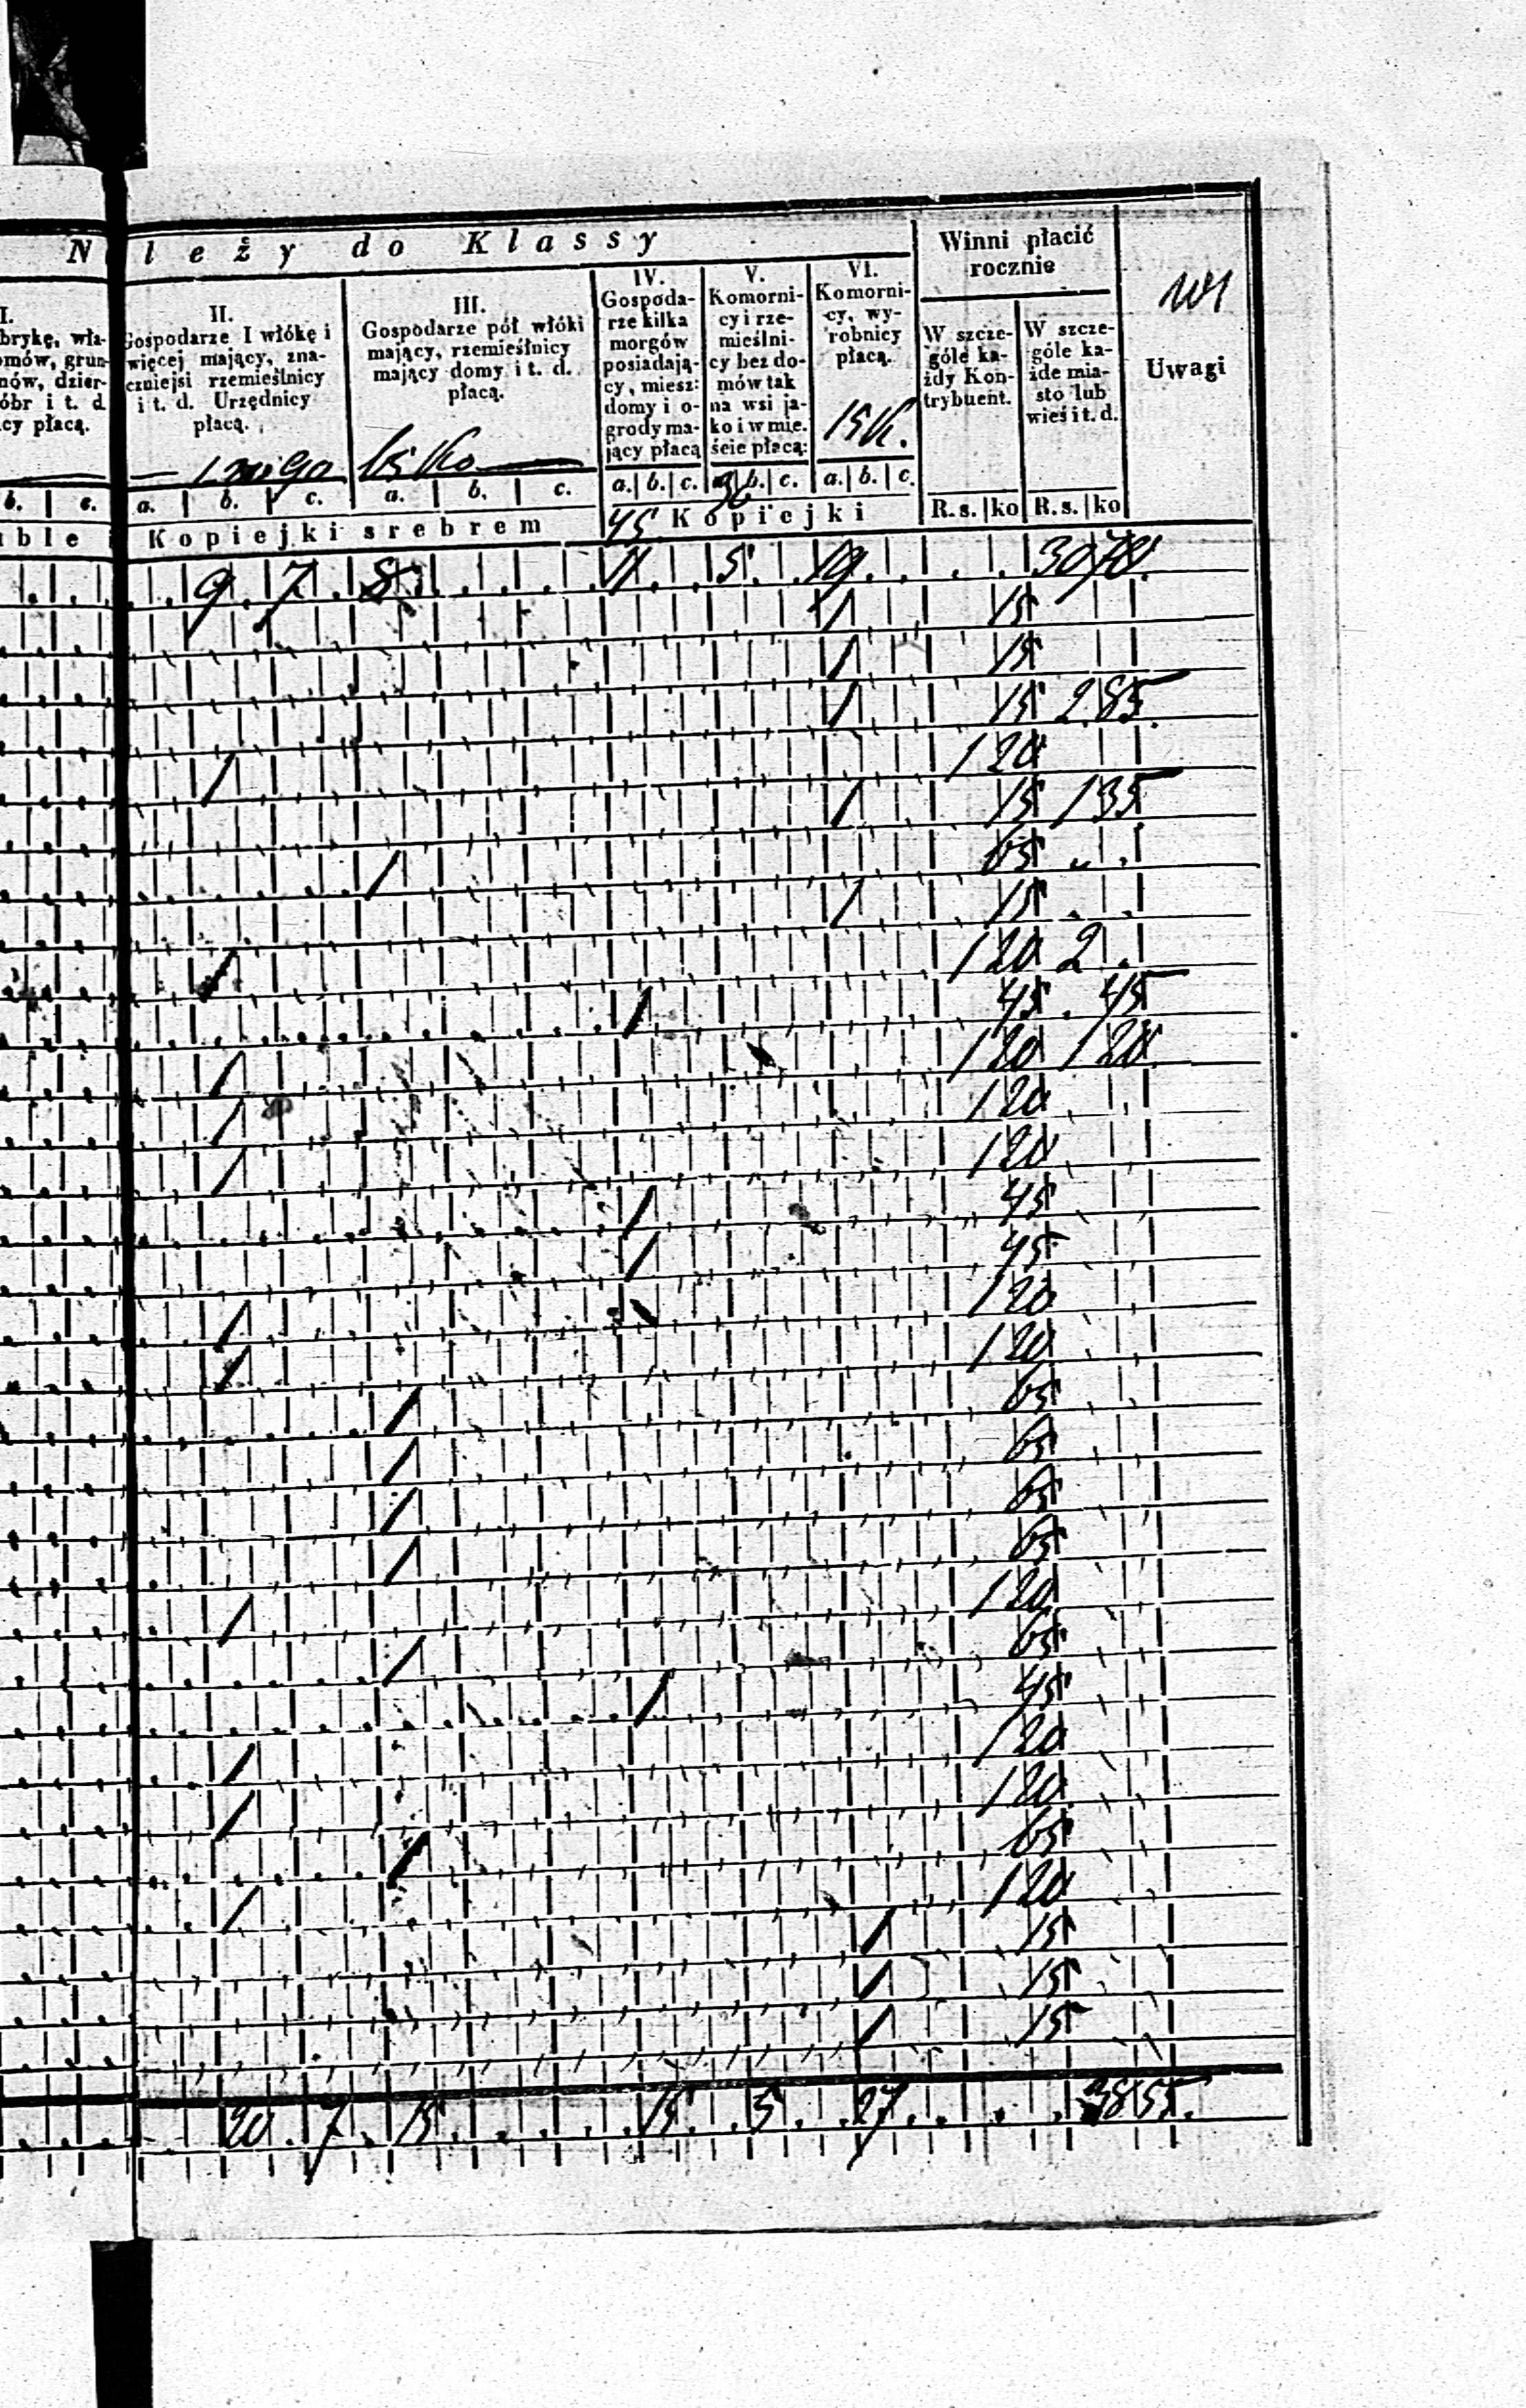 Należy do Klassy
Winni płacić
rocznie
Uwagi
I.
brykę, wła-
omów, grun-
nów, dzier-
óbr i t. d
cy płacą.
II.
Gospodarze I włókę i
więcej mający, zna-
czniejsi rzemieślnicy
i t. d. Urzędnicy
płacą.
III.
Gospodarze pół włóki
mający, rzemieślnicy
mający domy i t. d.
płacą.
65 Ko
IV.
Gospoda-
rze kilka
morgów
posiadają-
cy, miesz:
domy i o-
grody ma-
jący płacą
V.
Komorni-
cy i rze-
mieślni-
cy bez do-
mów tak
na wsi ja-
ko i w mie.
ście płacą:
VI.
Komorni-
cy, wy-
robnicy
płacą.
15 K.
W szcze-
góle ka-
żdy Kon-
trybuent.
W szcze-
góle ka-
żde mia-
sto lub
wieś i t. d.
b. c. a. b. c. a. b. c. a. b. c. b. c. a. b. c.
uble Kopiejki srebrem 45 Kopiejki R. s. ko R. s. ko
9 7 8 11 5 19 30 70
/ 15
/ 15
/ 15 2 85
/ 1 20
/ 15 1 35
/ 65
/ 15
/ 1 20 2
/ 45 45
/ 1 20 1 20
/ 1 20
/ 1 20
/ 45
/ 45
/ 1 20
/ 1 20
/ 65
/ 65
/ 65
/ 65
/ 1 20
/ 65
/ 45
/ 1 20
/ 1 20
/ 65
/ 1 20
/ 15
/ 15
/ 15
20 7 15 15 5 27 38 55